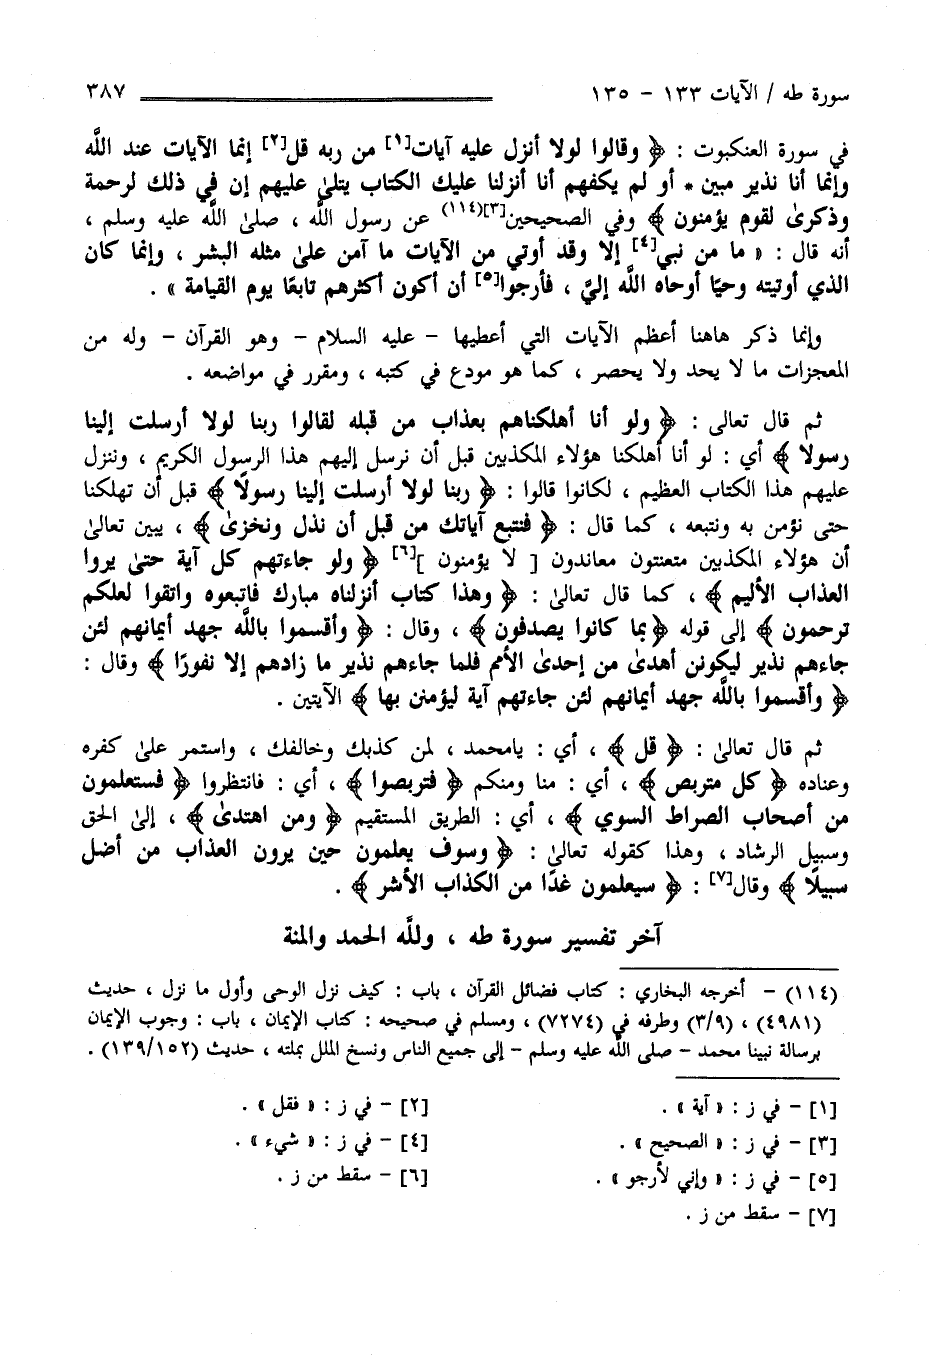 سورة طه / الآيات ١٣٣ - ١٣٥ ٣٨٧
في سورة العنكبوت : ﴿ وقالوا لولا أنزل عليه آيات[١] من ربه قل[٢] إنما الآيات عند الله
وإنما أنا نذير مبين * أو لم يكفهم أنا أنزلنا عليك الكتاب يتلىٰ عليهم إن في ذلك لرحمة
وذكرىٰ لقوم يؤمنون ﴾ وفي الصحيحين[٣](١١٤) عن رسول الله ، صلىٰ الله عليه وسلم ،
أنه قال : « ما من نبي[٤] إلا وقد أوتي من الآيات ما آمن علىٰ مثله البشر ، وإنما كان
الذي أوتيته وحيًا أوحاه الله إليّ ، فأرجوا[٥] أن أكون أكثرهم تابعًا يوم القيامة » .
وإنما ذكر هاهنا أعظم الآيات التي أعطيها - عليه السلام - وهو القرآن - وله من
المعجزات ما لا يحد ولا يحصر ، كما هو مودع في كتبه ، ومقرر في مواضعه .
ثم قال تعالى : ﴿ ولو أنا أهلكناهم بعذاب من قبله لقالوا ربنا لولا أرسلت إلينا
رسولا ﴾ أي : لو أنا أهلكنا هؤلاء المكذبين قبل أن نرسل إليهم هذا الرسول الكريم ، وننزل
عليهم هذا الكتاب العظيم ، لكانوا قالوا : ﴿ ربنا لولا أرسلت إلينا رسولًا ﴾ قبل أن تهلكنا
حتى نؤمن به ونتبعه ، كما قال : ﴿ فنتبع آياتك من قبل أن نذل ونخزىٰ ﴾ ، يبين تعالىٰ
أن هؤلاء المكذبين متعنتون معاندون [ لا يؤمنون ][٦] ﴿ ولو جاءتهم كل آية حتىٰ يروا
العذاب الأليم ﴾ ، كما قال تعالىٰ : ﴿ وهذا كتاب أنزلناه مبارك فاتبعوه واتقوا لعلكم
ترحمون ﴾ إلى قوله ﴿ بما كانوا يصدفون ﴾ ، وقال : ﴿ وأقسموا بالله جهد أيمانهم لئن
جاءهم نذير ليكونن أهدىٰ من إحدىٰ الأمم فلما جاءهم نذير ما زادهم إلا نفورًا ﴾ وقال :
﴿ وأقسموا بالله جهد أيمانهم لئن جاءتهم آية ليؤمنن بها ﴾ الآيتين .
ثم قال تعالىٰ : ﴿ قل ﴾ ، أي : يامحمد ، لمن كذبك وخالفك ، واستمر علىٰ كفره
وعناده ﴿ كل متربص ﴾ ، أي : منا ومنكم ﴿ فتربصوا ﴾ ، أي : فانتظروا ﴿ فستعلمون
من أصحاب الصراط السوي ﴾ ، أي : الطريق المستقيم ﴿ ومن اهتدىٰ ﴾ ، إلىٰ الحق
وسبيل الرشاد ، وهذا كقوله تعالىٰ : ﴿ وسوف يعلمون حين يرون العذاب من أضل
سبيلًا ﴾ وقال[٧] : ﴿ سيعلمون غدًا من الكذاب الأشر ﴾ .
آخر تفسير سورة طه ، ولله الحمد والمنة
(١١٤) - أخرجه البخاري : كتاب فضائل القرآن ، باب : كيف نزل الوحى وأول ما نزل ، حديث
(٤٩٨١) ، (٣/٩) وطرفه في (٧٢٧٤) ، ومسلم في صحيحه : كتاب الإيمان ، باب : وجوب الإيمان
برسالة نبينا محمد - صلى الله عليه وسلم - إلى جميع الناس ونسخ الملل بملته ، حديث (١٣٩/١٥٢) .
[١] - في ز : « آية » . [٢] - في ز : « فقل » .
[٣] - في ز : « الصحيح » . [٤] - في ز : « شيء » .
[٥] - في ز : « وإني لأرجو » . [٦] - سقط من ز .
[٧] - سقط من ز .